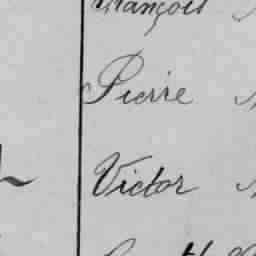 François
Pierre
Victor